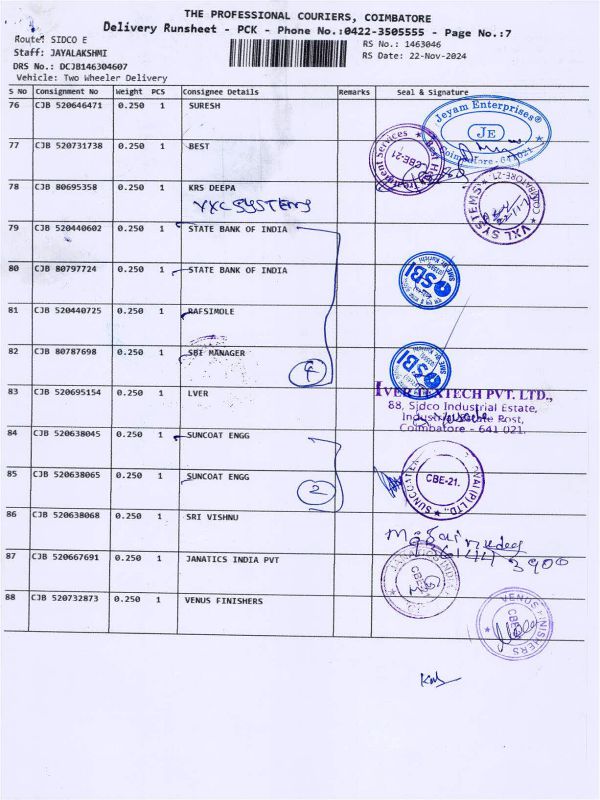 THE PROFESSIONAL COURIERS, COIMBATORE
Delivery Runsheet - PCK - Phone No.:0422-3505555 - Page No.:7
Route: SIDCO E
RS No.: 1463046
Staff: JAYALAKSHMI
RS Date: 22-Nov-2024
DRS No.: DCJB146304607
Vehicle: Two Wheeler Delivery
S No Consignment No Weight PCS Consignee Details Remarks Seal & Signature
76 CJB 520646471 0.250 1 SURESH
Jeyam Enterprises®
JE
Coimbatore - 641 021
77 CJB 520731738 0.250 1 BEST
Best Heat Treatment Services
CBE-21
78 CJB 80695358 0.250 1 KRS DEEPA
VXL SYSTEMS
VXL SYSTEMS COIMBATORE-21
79 CJB 520440602 0.250 1 STATE BANK OF INDIA
80 CJB 80797724 0.250 1 STATE BANK OF INDIA
SBI
81 CJB 520440725 0.250 1 RAFSIMOLE
82 CJB 80787698 0.250 1 SBI MANAGER
4
SBI
83 CJB 520695154 0.250 1 LVER
IVER TEXTECH PVT. LTD.,
88, Sidco Industrial Estate,
Industrial Estate Post,
Coimbatore - 641 021.
84 CJB 520638045 0.250 1 SUNCOAT ENGG
85 CJB 520638065 0.250 1 SUNCOAT ENGG
2
CBE-21.
(P) LTD.,
86 CJB 520638068 0.250 1 SRI VISHNU
3900
87 CJB 520667691 0.250 1 JANATICS INDIA PVT
JANATICS INDIA
88 CJB 520732873 0.250 1 VENUS FINISHERS
VENUS FINISHERS
CBE